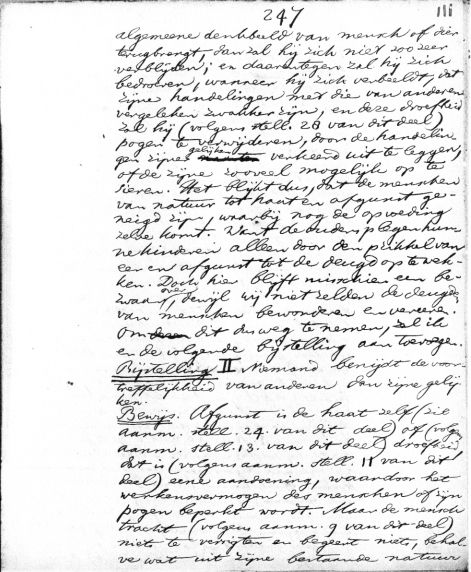 247
111
algemeene denkbeeld van mensch of dier
terugbrengt, dan zal hij zich niet zoo zeer
verblijden; en daarentegen zal hij zich
bedroeven, wanneer hij zich verbeeldt, dat
zijne handelingen met die van anderen
vergeleken zwakker zijn, en deze droefheid
zal hij (volgens stell. 28 van dit deel)
pogen te verwijderen, door de handelin
gen zijner gelijken verkeerd uit te leggen,
of de zijne zooveel mogelijk op te
sieren. Het blijkt dus, dat de menschen
van natuur tot haat en afgunst ge-
neigd zijn, waarbij nog de opvoeding
zelve komt. Want de ouders plegen hun-
ne kinderen alleen door den prikkel van
eer en afgunst tot de deugd op te wek-
ken. Doch hier blijft misschien een be-
zwaar over, dewijl wij niet zelden de deugden
van menschen bewonderen en vereeren.
Om dit dus weg te nemen, zal ik
en de volgende bijstelling aan toevoegen.
Bijstelling II Niemand benijdt de voor-
treffelijkheid van anderen dan zijne gelij
ken.
Bewijs. Afgunst is de haat zelf (zie
aanm. stell. 24. van dit deel) of (volgens
aanm. stell. 13. van dit deel) droefheid,
dat is (volgens aanm. stell. 11 van dit
deel) eene aandoening, waardoor het
werkensvermogen des menschen of zijn
pogen beperkt wordt. Maar de mensch
tracht (volgens aanm. 9 van dit deel)
niets te verrigten en begeert niets, behal
ve wat uit zijne bestaande natuur